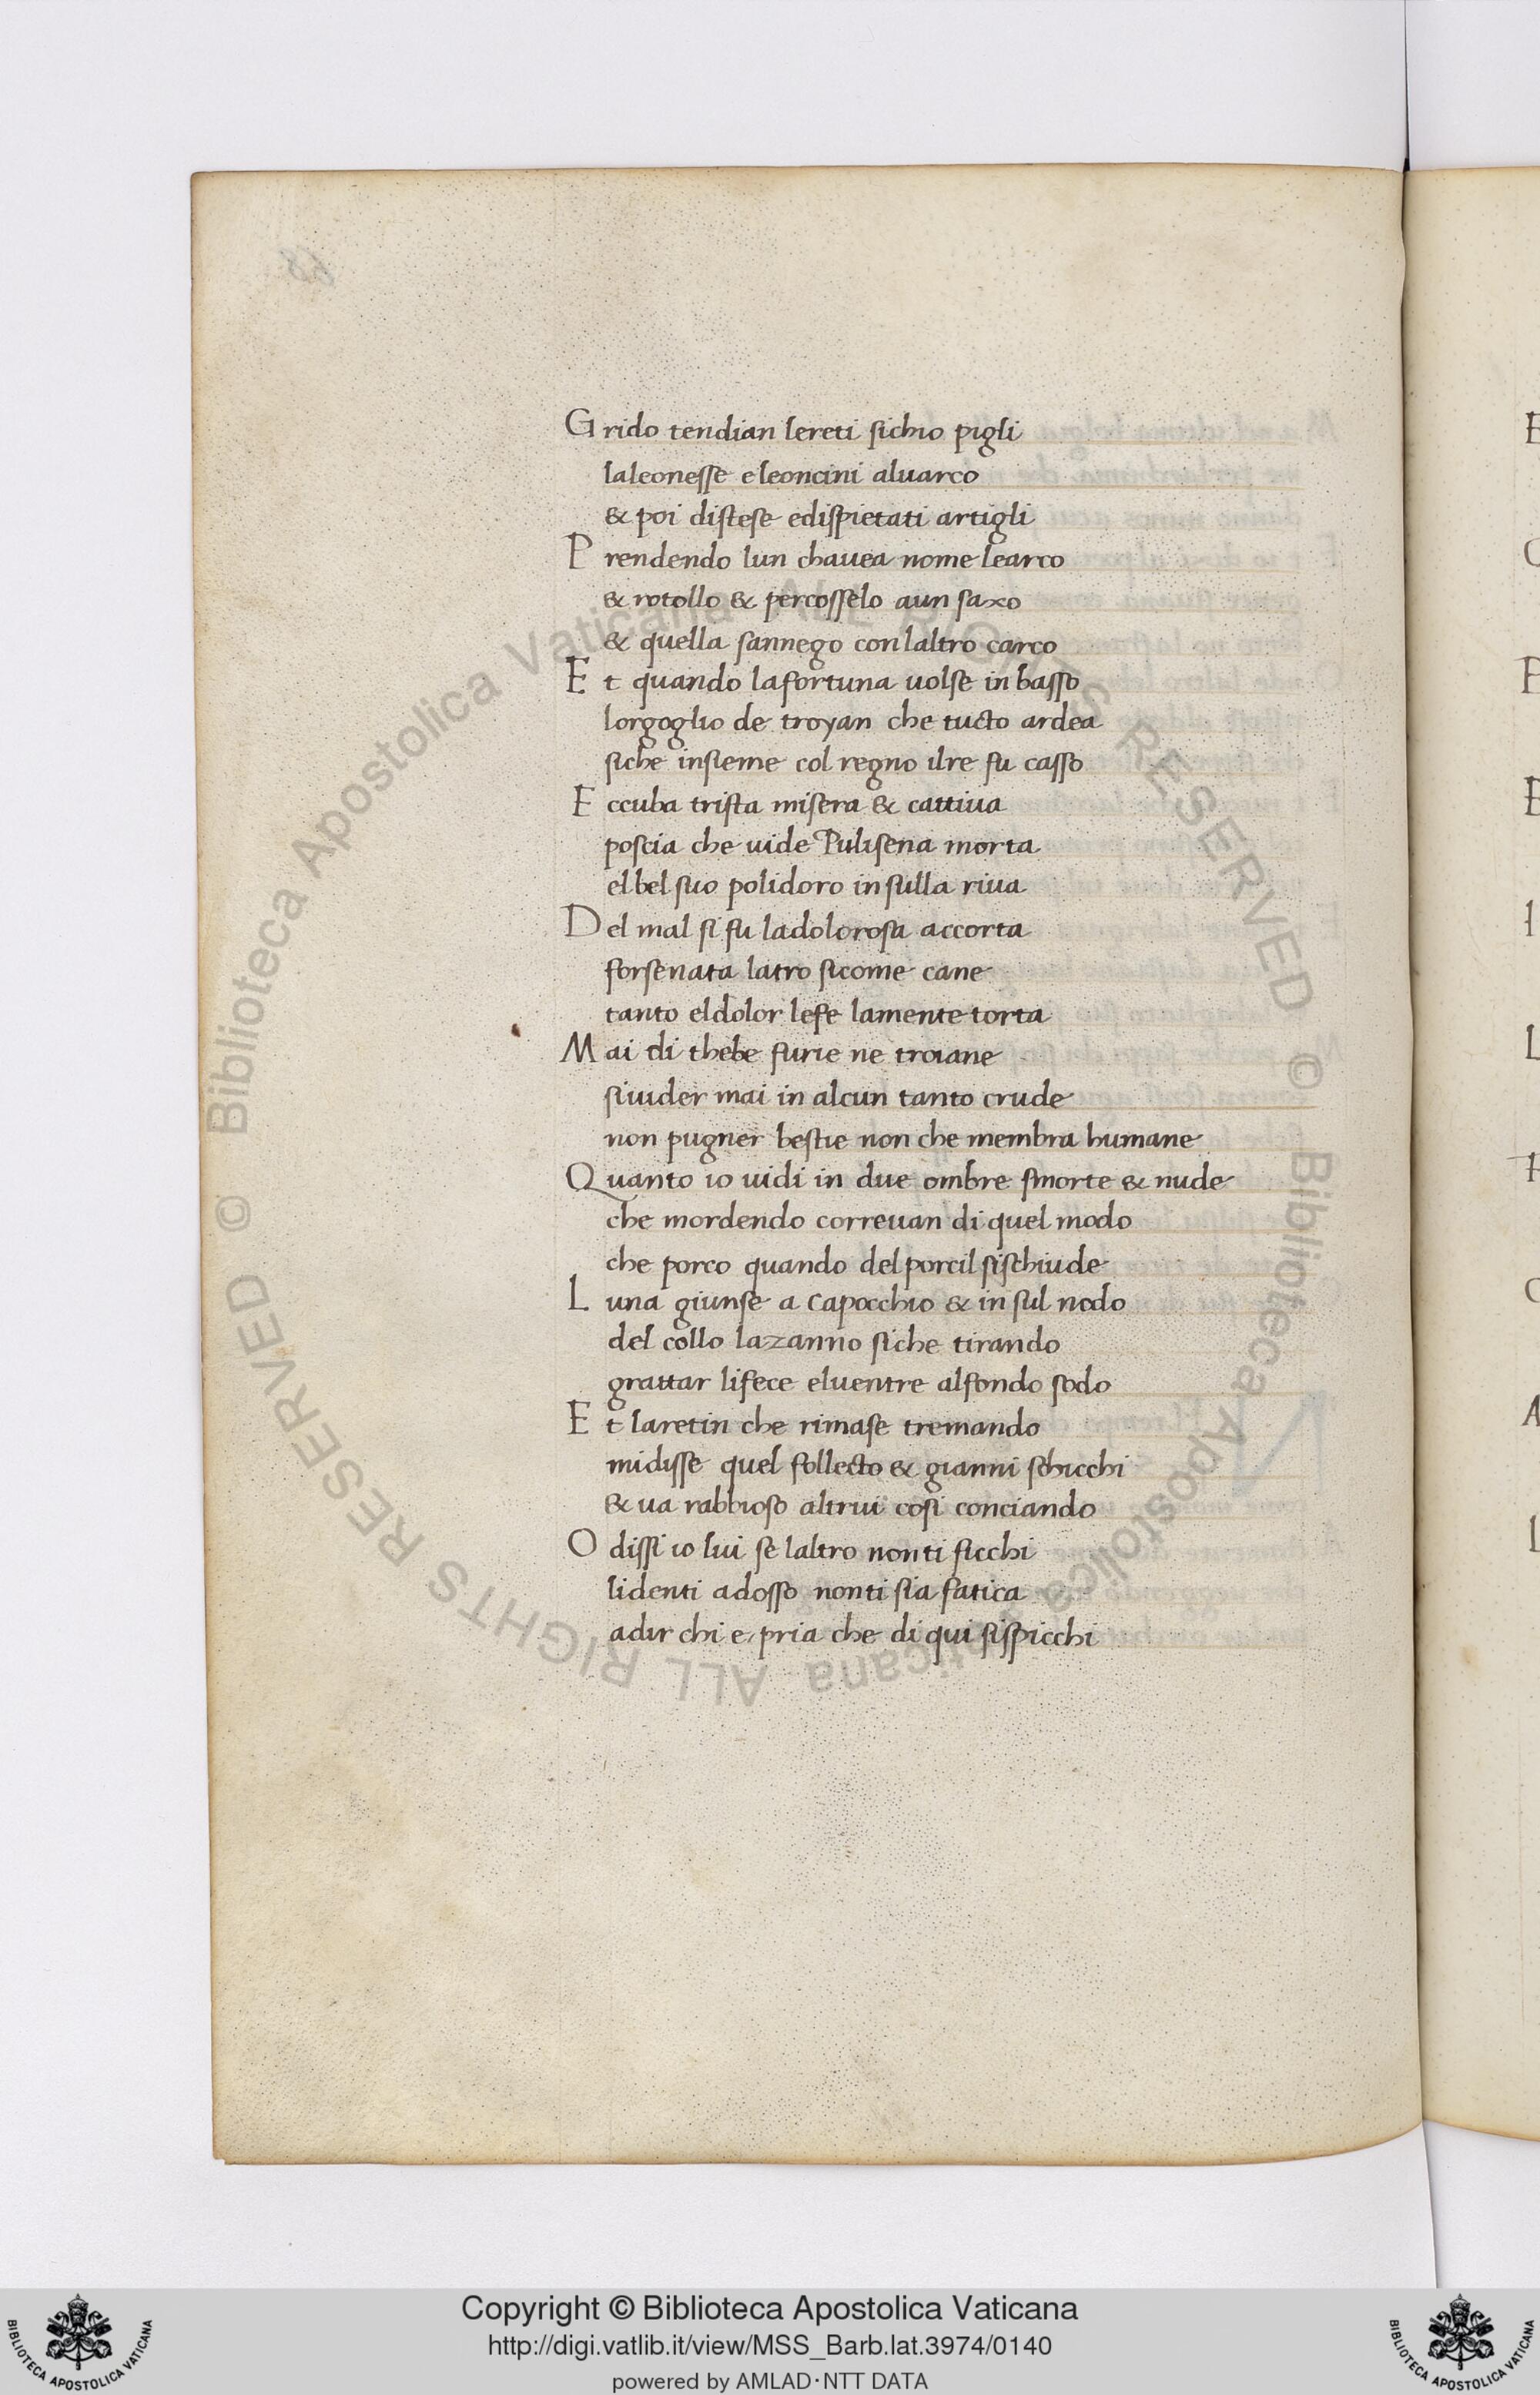 Grido tendian lereti sichio pigli
laleonesse eleoncini aluarco
& poi distese edispietati artigli
Prendendo lun chauea nome learco
& rotollo & percosselo aun saxo
& quella sannego conlaltro carco
Et quando lafortuna uolse in basso
lorgoglio de troyan che tucto ardea
siche insieme col regno ilre fu casso
Eccuba trista misera & cattiua
poscia che uide Pulisena morta
elbel suo polidoro in sulla riua
Del mal si fu ladolorosa accorta
forsenata latro sicome cane
tanto eldolor lefe lamente torta
Mai di thebe furie ne troiane
siuider mai in alcun tanto crude
non pugner bestie non che membra humane
Quanto io uidi in due ombre smorte & nude
che mordendo correuan di quel modo
che porco quando delporcil sischiude
Luna giunse a Capocchio & in sul nodo
del collo lazanno siche tirando
grattar lifece eluentre alfondo sodo
Et laretin che rimase tremando
midisse quel follecto & gianni schicchi
& ua rabbioso altrui cosi conciando
O dissi io lui se laltro nonti ficchi
lidenti adosso nonti sia fatica
adir chi e, pria che di qui sispicchi
Copyright © Biblioteca Apostolica Vaticana
http://digi.vatlib.it/view/MSS_Barb.lat.3974/0140
powered by AMLAD·NTT DATA